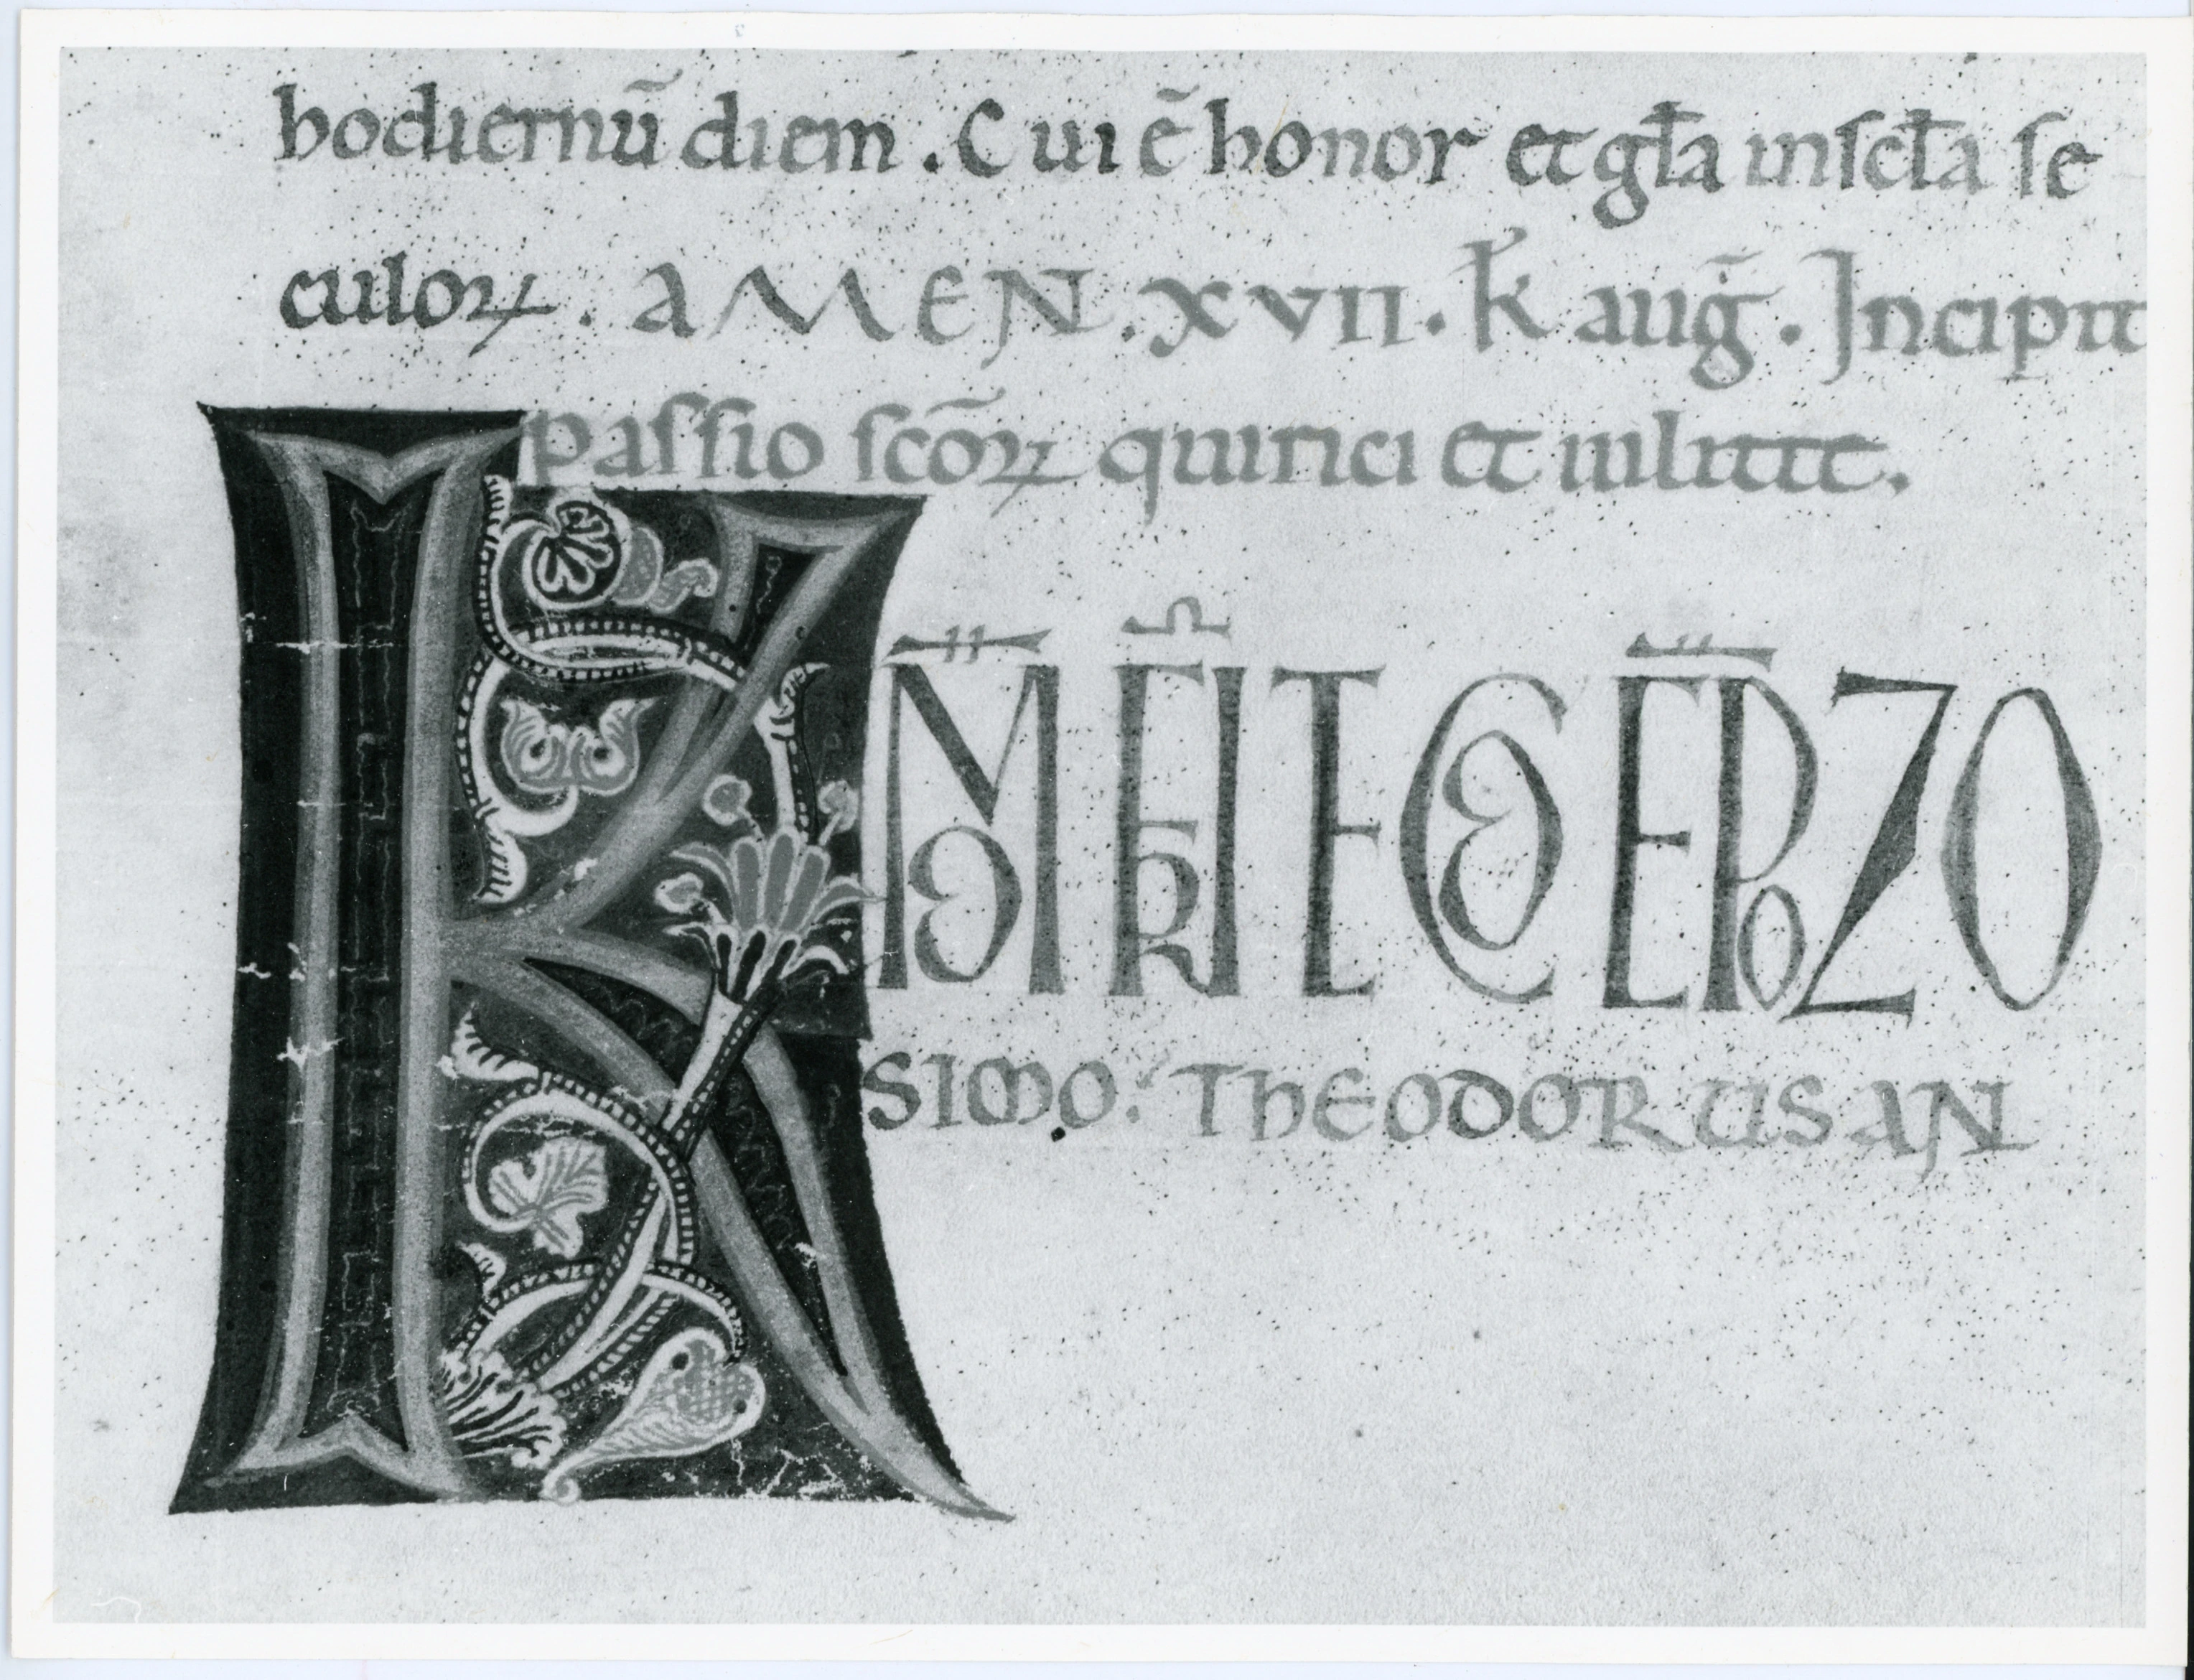 hodiernū diem. Cui ē honor et gła in scła se
culoꝝ. AMEN. xvii. k̄ auḡ. Incipit
passio sc̄oꝝ quirici et iulitte.
K M̄O FR̄I ET CO EP̄O ZO
SIMO. THEODORUS AN